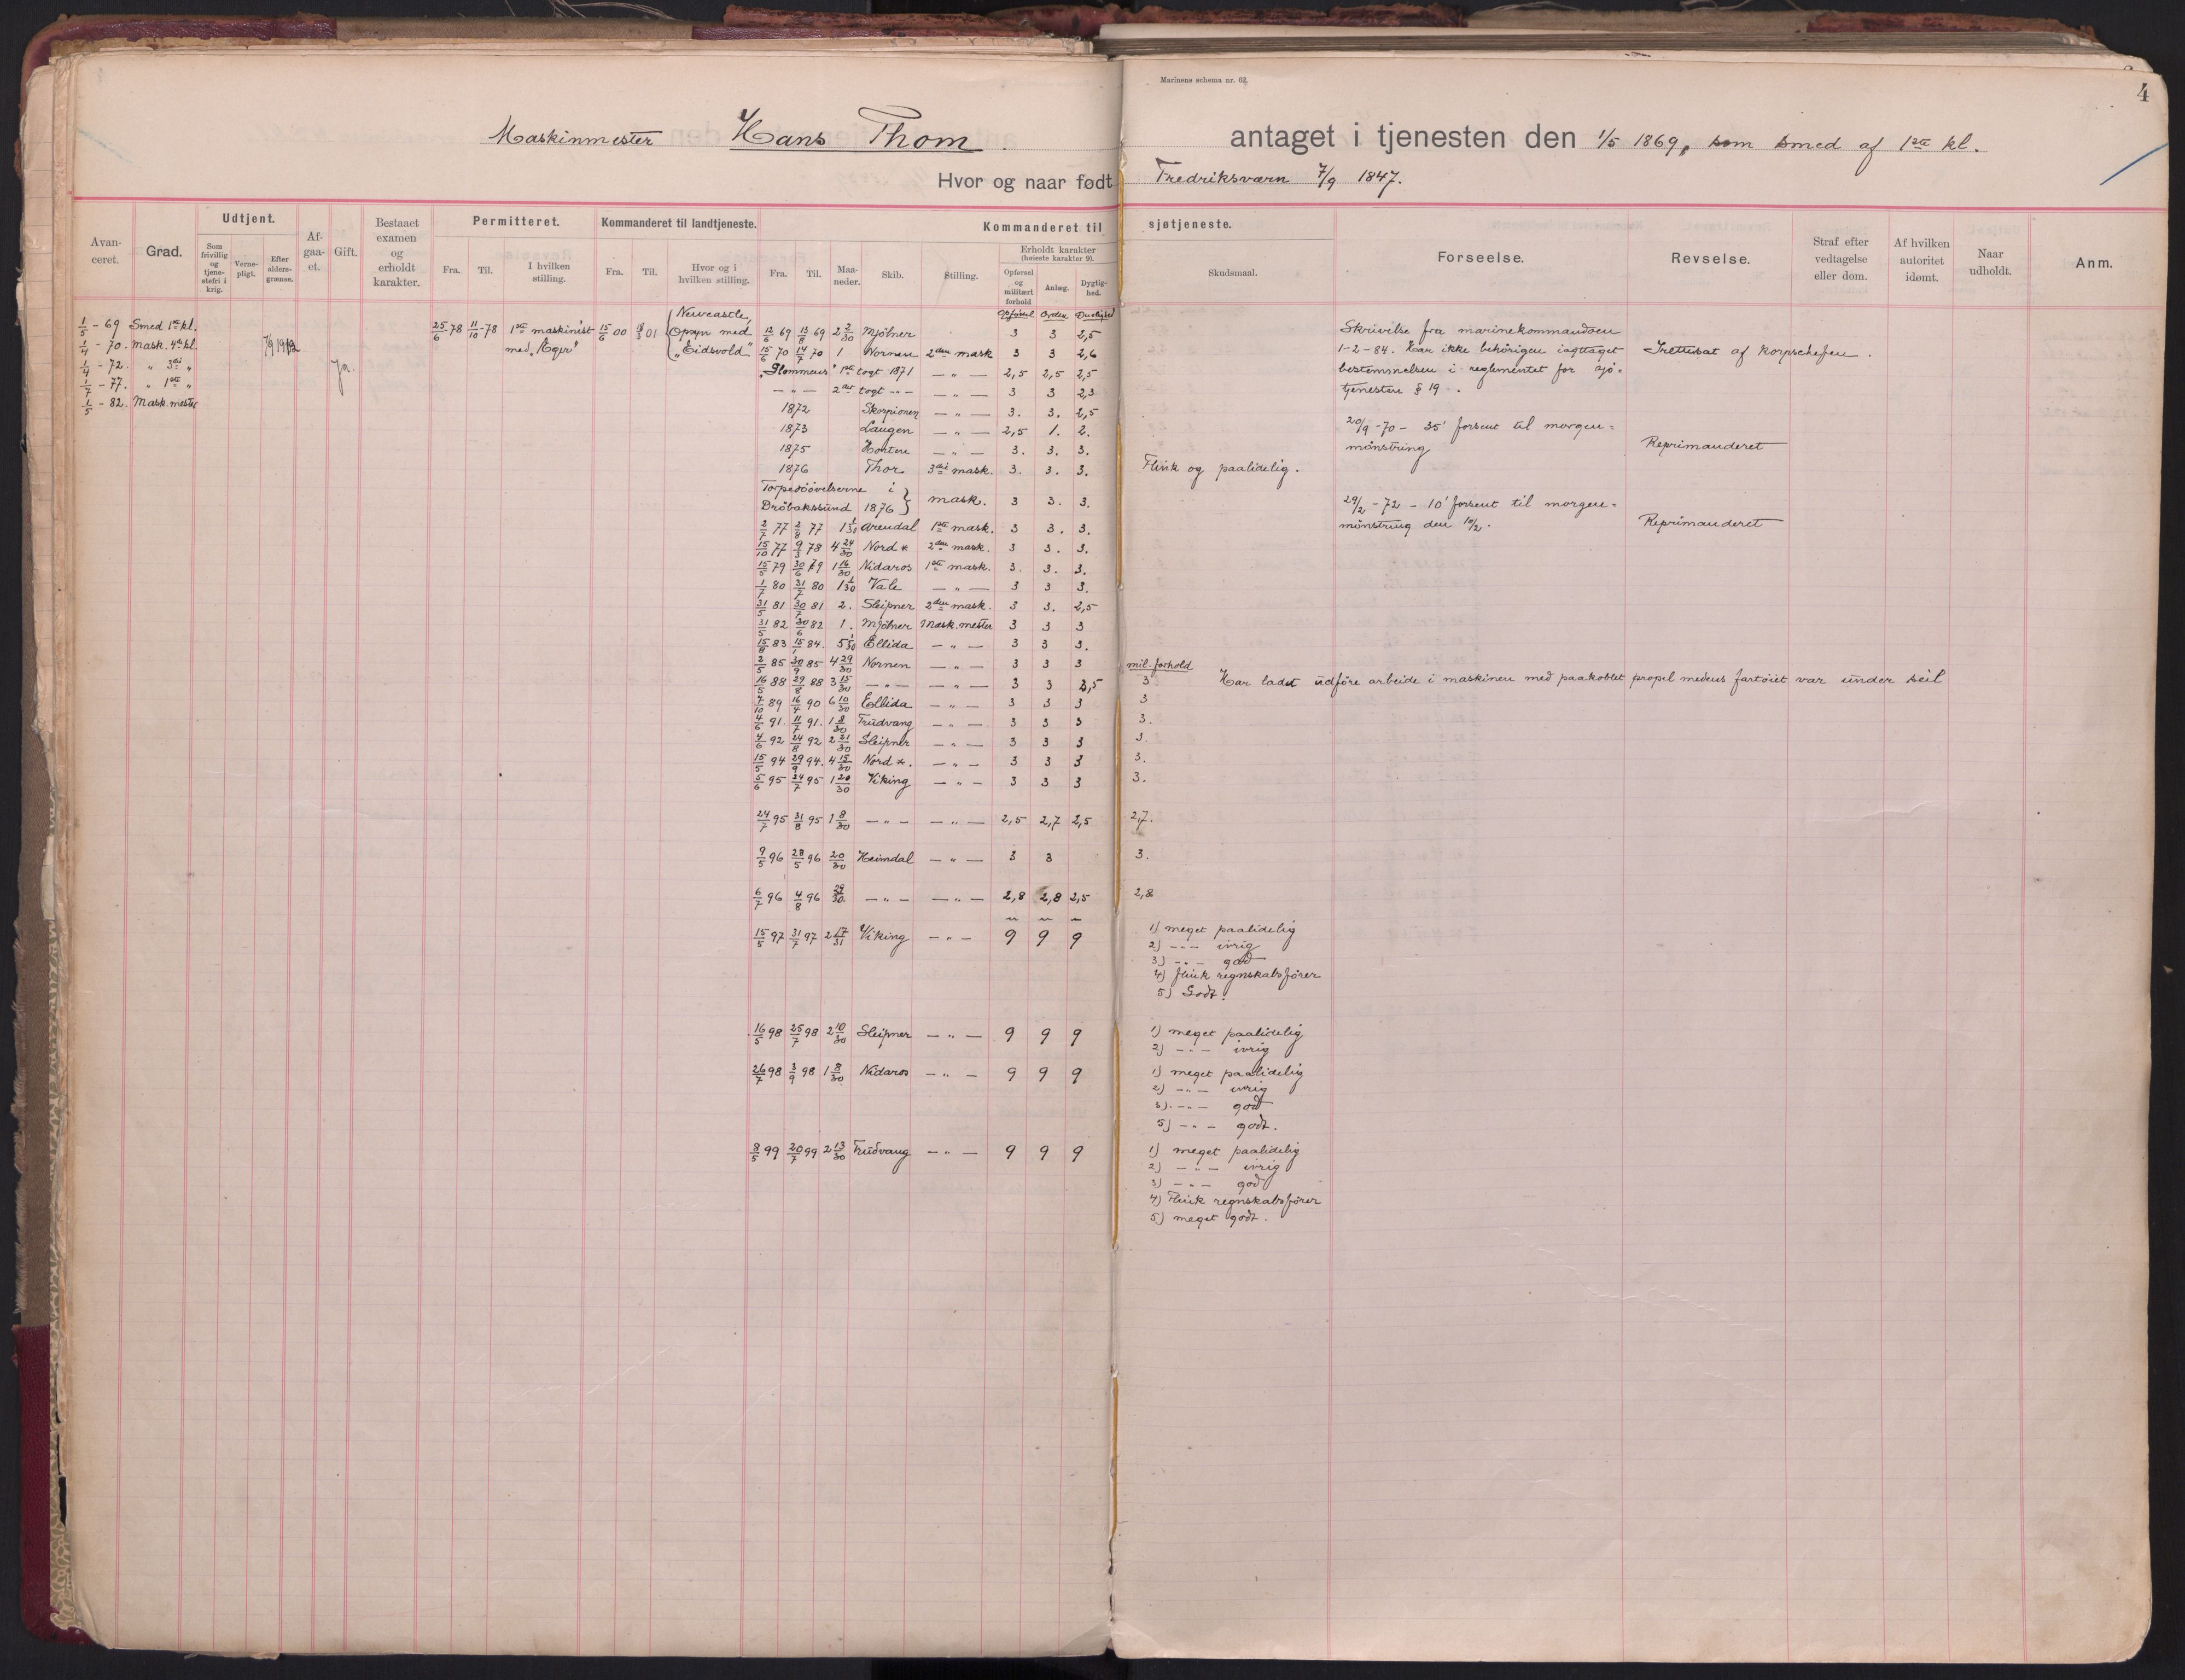 Marinens schema nr. 62.
4
Maskinmester Hans Thom antaget i tjenesten den 1/5 1869, som smed af 1ste kl.
Hvor og naar født Fredriksværn 7/9 1847.
Avanceret.
Grad.
Udtjent.
Som frivillig og tjenestefri i krig.
Vernepligt.
Efter aldersgrænse.
Afgaaet.
Gift.
Bestaaet examen og erholdt karakter.
Permitteret.
Fra. Til. I hvilken stilling.
Kommanderet til landtjeneste.
Fra. Til. Hvor og i hvilken stilling.
Kommanderet til sjøtjeneste.
Fra. Til. Maaneder. Skib. Stilling.
Erholdt karakter (høieste karakter 9).
Opførsel og militært forhold Anlæg. Dygtighed.
Skudsmaal.
Forseelse.
Revselse.
Straf efter vedtagelse eller dom.
Af hvilken autoritet idømt.
Naar udholdt.
Anm.
1/5 - 69 Smed 1ste kl.
1/4 - 70. Mask. 4de kl.
1/4 - 72. " 3die "
1/7 - 77. " 1ste "
1/5 - 82. Mask. mester
7/9 1912
Ja
25/6 78 11/10 - 78 1ste maskinist
med "Æger"
15/6 00 01
Newcastle,
Opsyn med
"Eidsvold"
Opførsel Orden Duelighed
12/6 69 13/8 69 2 2/30 Mjölner 3 3 2,5
15/6 70 14/7 70 1 Nornen 2den mask 3 3 2,6
"Glommens" 1ste togt 1871 — " — 2,5 2,5 2,5
— " — 2det togt - " - — " — 3 3 2,3
1872 Skorpionen — " — 3. 3. 2,5
1873 Laugen — " — 2,5 1. 2.
1875 Horten — " — 3. 3. 3.
1876 Thor 3die mask. 3. 3. 3. Flink og paalidelig.
Torpedoövelserne i
Dröbakssund 1876 } mask. 3 3. 3.
2/7 77 2/8 77 1 1/30 Arendal 1ste mask. 3 3. 3.
15/10 77 9/3 78 4 24/30 Nord * 2den mask. 3 3. 3.
15/5 79 30/6 79 1 16/30 Nidaros 1ste mask. 3. 3. 3.
1/7 80 31/7 80 1 1/30 Vale — " — 3 3 3.
31/5 81 30/7 81 2. Sleipner 2den mask. 3 3. 2,5
31/5 82 30/6 82 1. Mjölner Mask. mester 3 3 3
15/8 83 15/1 84. 5 1/30 Ellida — " — 3 3 3.
2/5 85 30/9 85 4 29/30 Nornen — " — 3 3 3 mil. forhold
16/5 88 29/8 88 3 15/30 — " — — " — 3 3 2,5 3 Har ladet udföre arbeide i maskinen med paakoblet propel medens fartöiet var under seil
7/10 89 16/4 90 6 10/30 Ellida — " — 3 3 3 3
4/6 91. 11/7 91. 1 8/30 Trudvang — " — 3 3 3 3.
4/6 92 24/8 92 2 21/30 Sleipner — " — 3 3 3 3.
15/5 94 29/9 94. 4 15/30 Nord *. — " — 3 3 3 3.
5/6 95 24/7 95 1 20/30 Viking — " — 3 3 3 3.
24/7 95 31/8 95 1 8/30 — " — — " — 2,5 2,7 2,5 2,7.
9/5 96 28/5 96 20/30 Heimdal — " — 3 3 3.
6/7 96 4/8 96 29/30. — " — — " — 2,8 2,8 2,5 2,8
15/5 97 31/7 97 2 17/31 Viking — " — 9 9 9 1) meget paalidelig
2) — " — ivrig
3) — " — god
4) flink regnskabsförer
5) Godt.
16/5 98 25/7 98 2 10/30 Sleipner — " — 9 9 9 1) meget paalidelig
2) — " — ivrig
26/7 98 3/9 98 1 8/30 Nidaros — " — 9 9 9 1) meget paalidelig
2) — " — ivrig
3). — " — god
5) — " — godt.
8/5 99 20/7 99 2 13/30 Trudvang — " — 9 9 9 1) meget paalidelig
2) — " — ivrig
3) — " — god
4) Flink regnskabsförer
5) meget godt.
Skrivelse fra marinekommandoen
1-2-84. Har ikke behörigen iagttaget Irettesat af korpschefen.
bestemmelsen i reglementet for sjö-
tjenesten § 19.
20/9 -70 - 35' forsent til morgen-
mönstring Reprimanderet
29/2 - 72 - 10' forsent til morgen-
mönstring den 10/2. Reprimanderet